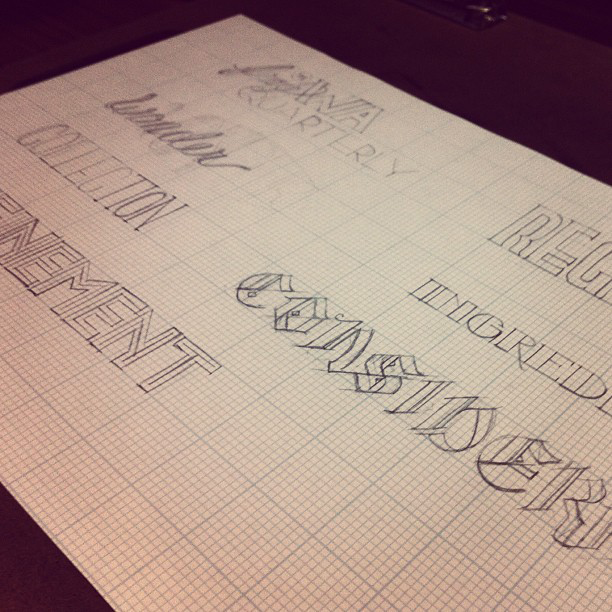 QUARTERLY
wonder
COLLECTION
NEMENT
REG
INGREDI
CONSIDER